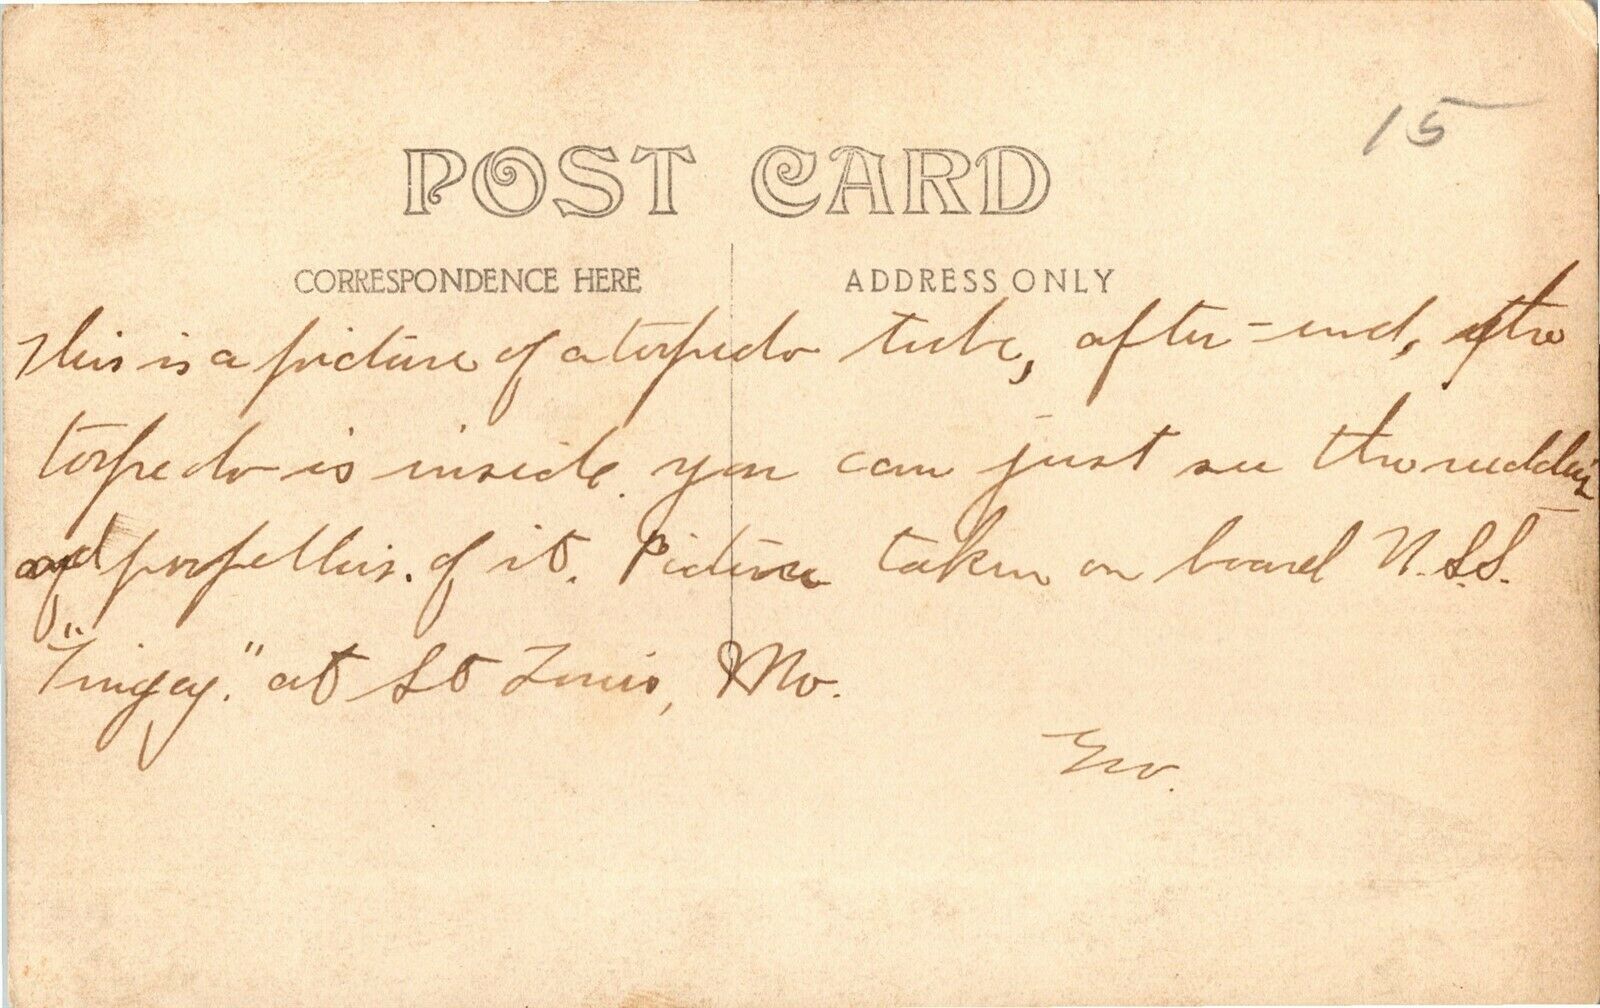 15
POST CARD
CORRESPONDENCE HERE
ADDRESS ONLY
This is a picture of a torpedo tube, after-end, if the
torpedo is inside. you can just see the rudders
and propellers. of it. Picture taken on board U.S.S.
"Tingey." at St Louis, Mo.
Geo.